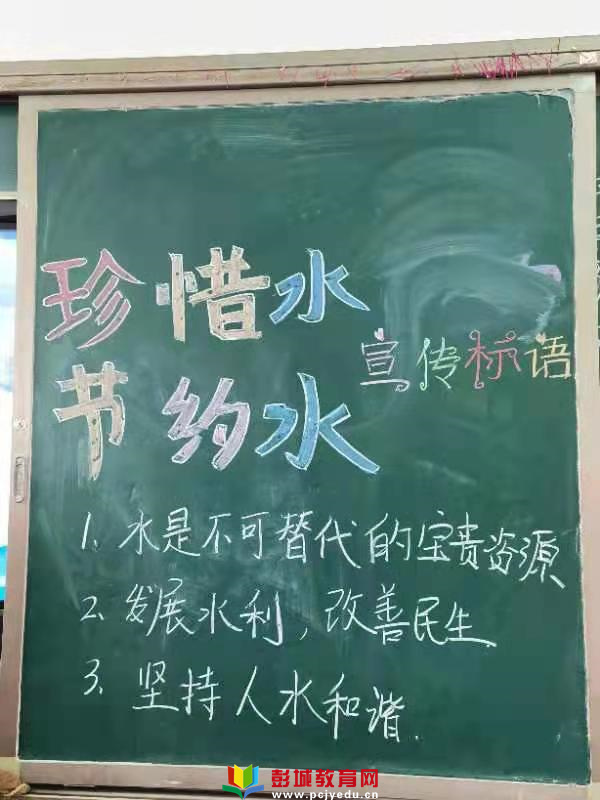 珍惜水
节约水
宣传标语
1. 水是不可替代的宝贵资源
2. 发展水利，改善民生
3. 坚持人水和谐.
彭城教育网
www.pcjyedu.cn